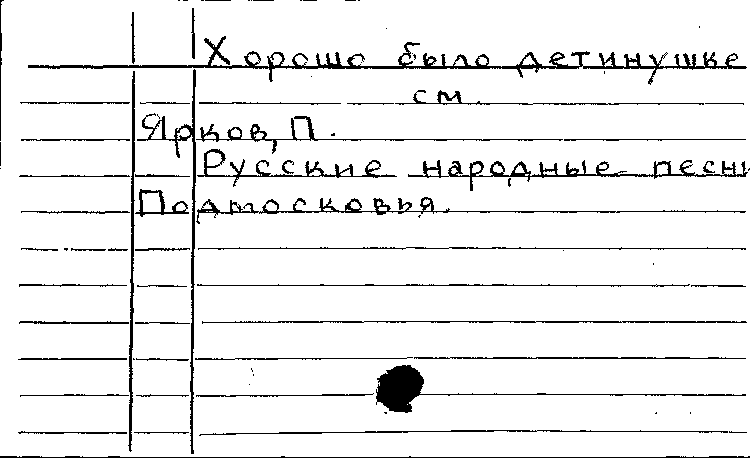 Хорошо было детинушке
см.
Ярков, П.
Русские народные песни
Подмосковья.